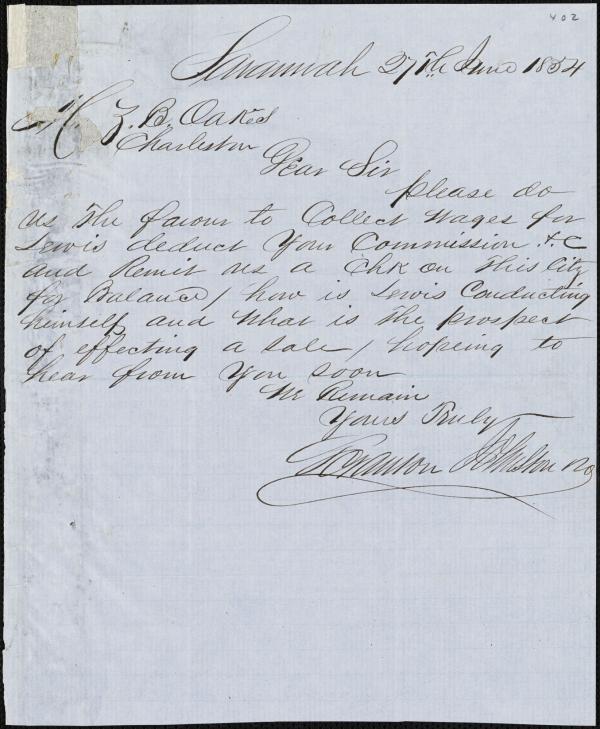 402
Savannah 27Th June 1854
Mr Z. B. Oakes
Charleston
Dear Sir
please do
us the favour to Collect wages for
Lewis deduct Your Commission &C
and Remit us a Chk on This City
for Balance / how is Lewis Conducting
himself and what is the prospect
of effecting a sale / hopeing to
hear from You soon
We Remain
Yours Truly
Scranton Johnston &Co